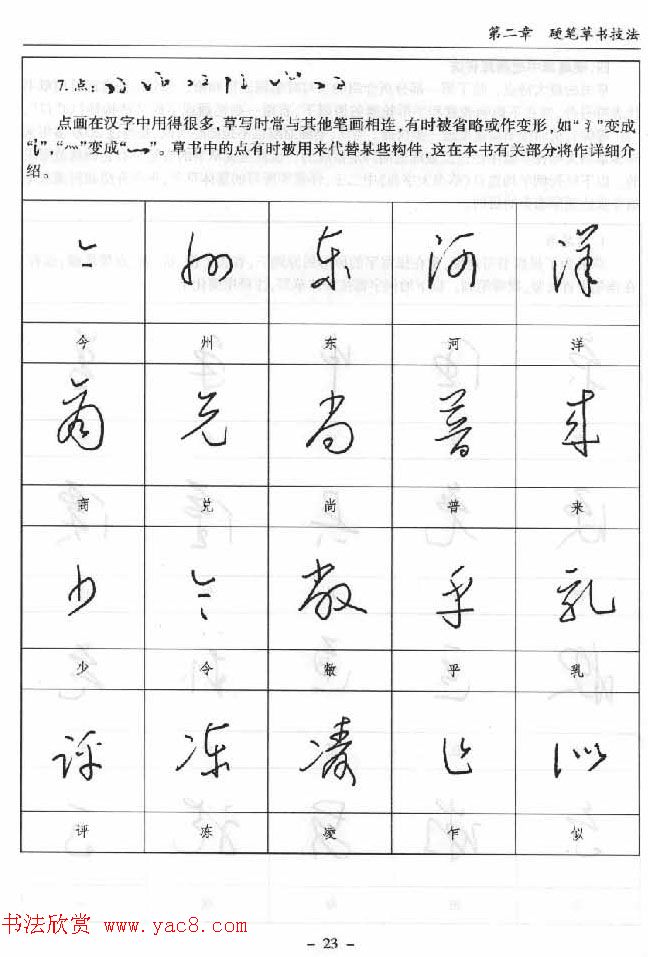 第二章 硬笔草书技法
7.点：
点画在汉字中用得很多，草写时常与其他笔画相连，有时被省略或作变形，如“ ”变成
“ ”，“ ”变成“ ”。草书中的点有时被用来代替某些构件，这在本书有关部分将作详细介
绍。
今 州 东 河 洋
今 州 东 河 洋
商 兑 尚 普 来
商 兑 尚 普 来
少 令 敞 乎 乳
少 令 敞 乎 乳
评 冻 凌 乍 似
评 冻 凌 乍 似
书法欣赏 www.yac8.com
- 23 -